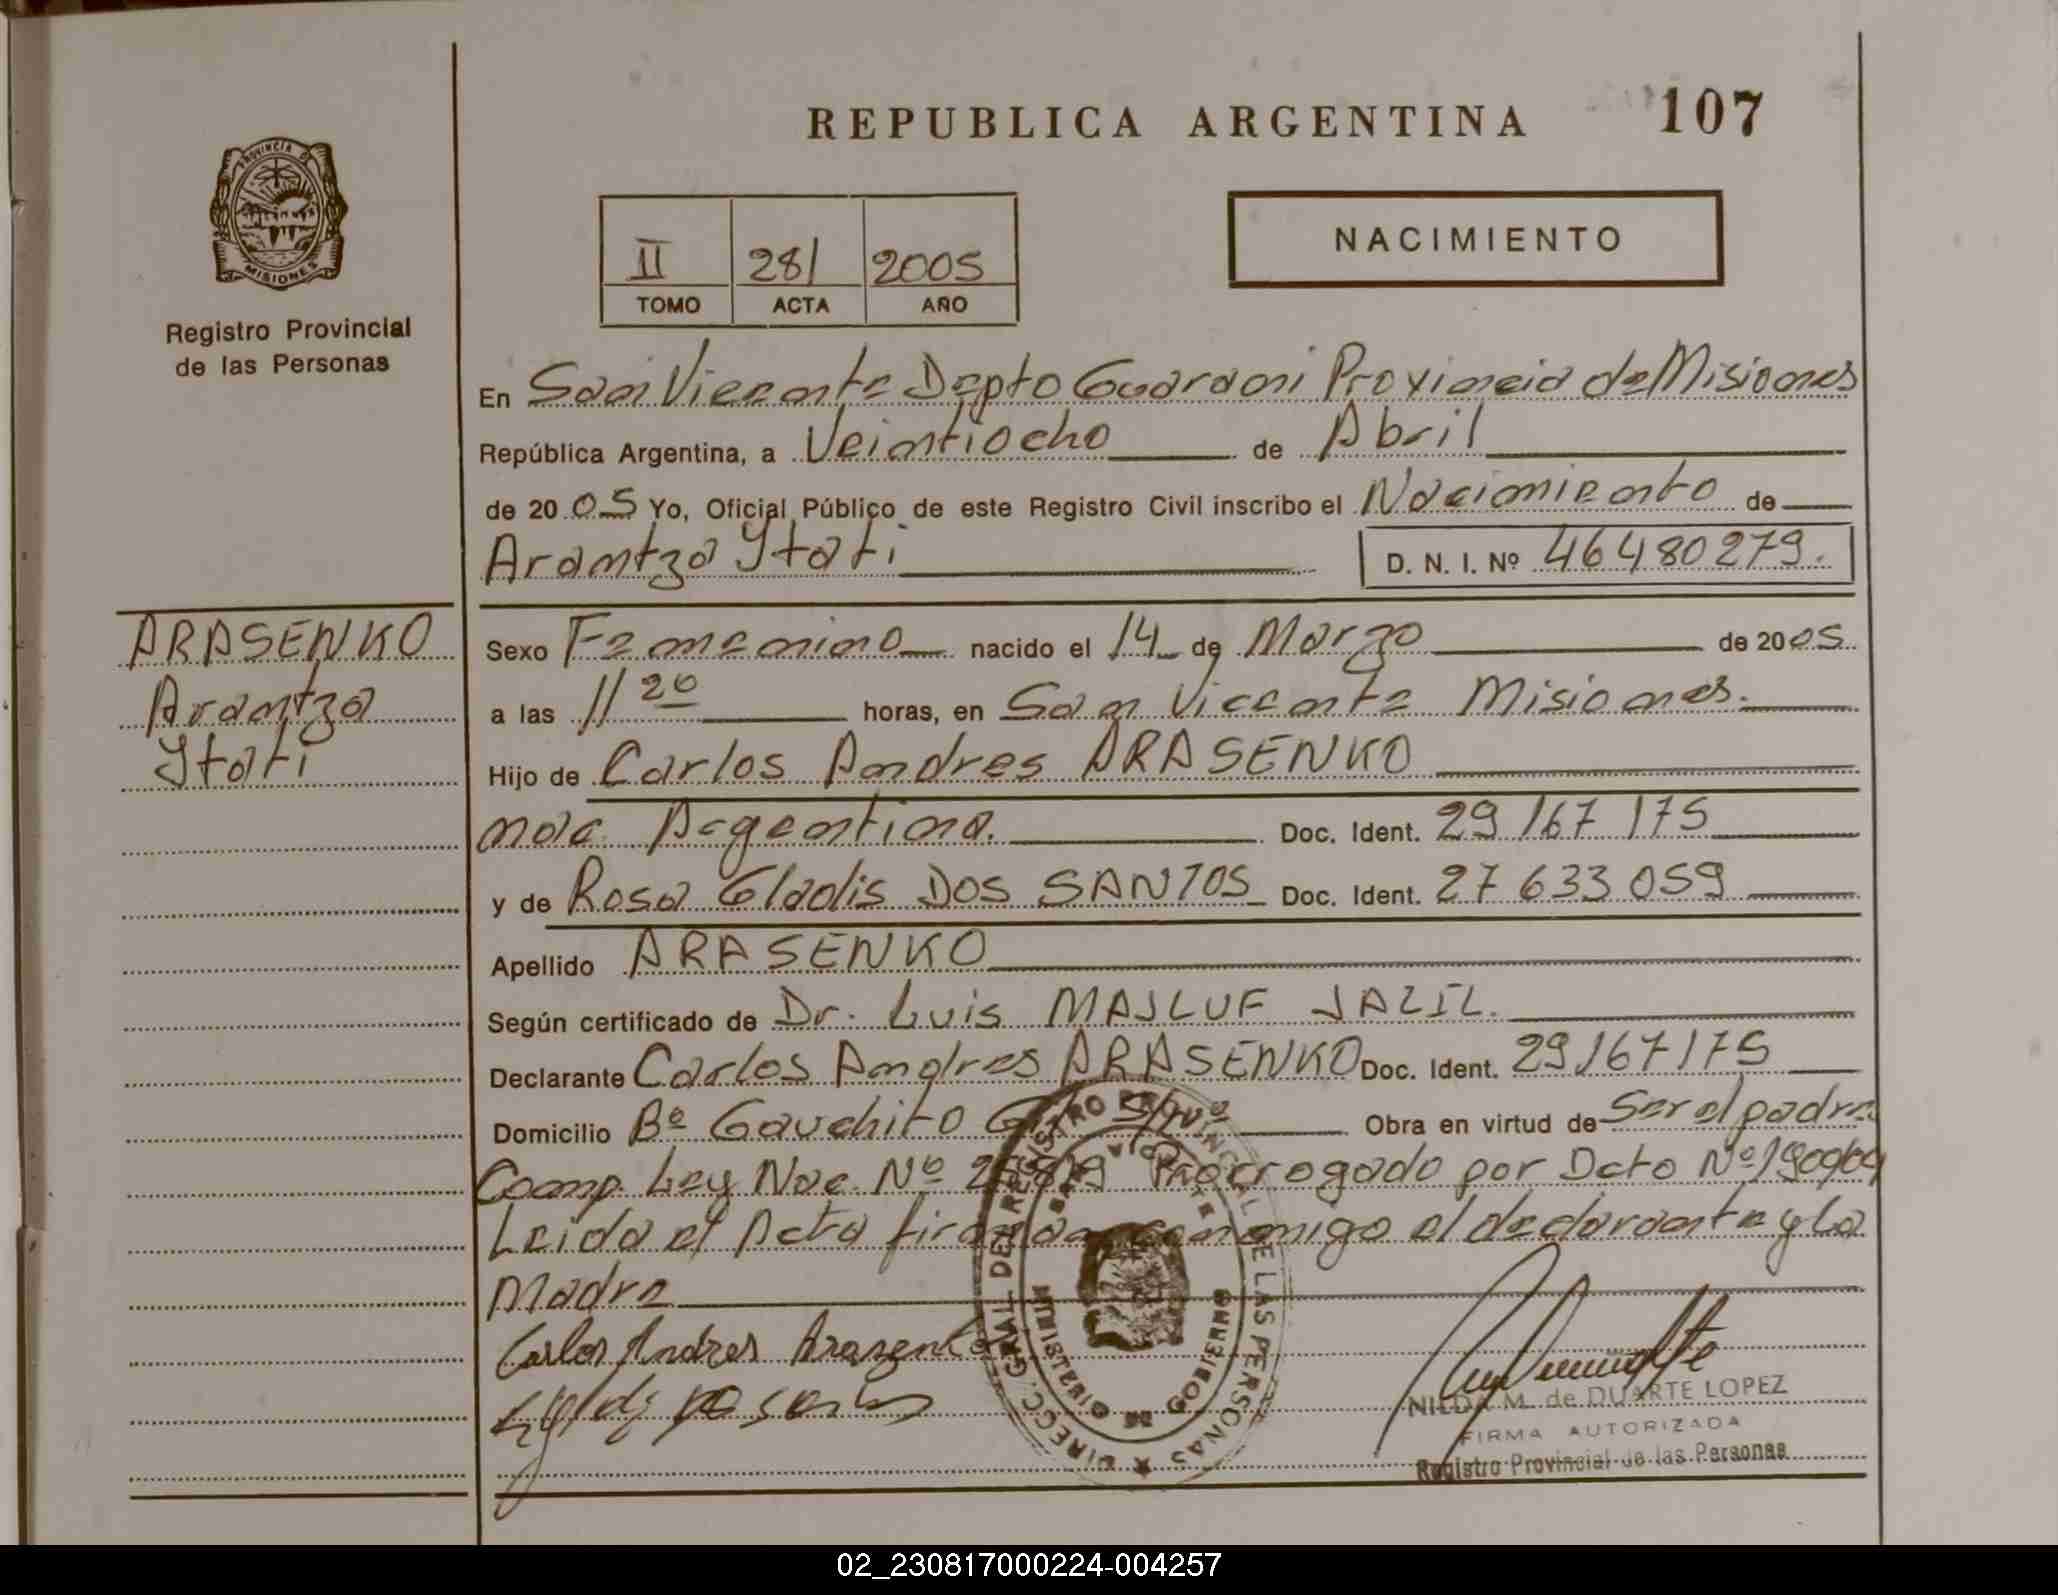 REPUBLICA ARGENTINA 107
PROVINCIA DE
MISIONES
Registro Provincial
de las Personas
II 281 2005
TOMO ACTA AÑO
NACIMIENTO
En San Vicente Depto Guarani Provincia de Misiones
República Argentina, a Veintiocho de Abril
de 2005 Yo, Oficial Público de este Registro Civil inscribo el Nacimiento de
Arantza Ytati D. N. I. Nº 46480279.
ARASENKO
Arantza
Ytati
Sexo Femenino nacido el 14 de Marzo de 2005
a las 11 20 horas, en San Vicente Misiones.
Hijo de Carlos Andres ARASENKO
nac Argentina. Doc. Ident. 29 167 175
y de Rosa Gladis DOS SANTOS Doc. Ident. 27 633 059
Apellido ARASENKO
Según certificado de Dr. Luis MAJLUF JALIL.
Declarante Carlos Andres ARASENKO Doc. Ident. 29167175
Domicilio Bº Gauchito Gil S/Nº Obra en virtud de Ser el padre
Comp. Ley Nac. Nº Prorrogado por Dcto Nº 190/04
Leida el Acta firman conmigo el declarante y La
Madre
Carlos Andres Arasenko
DIRECC. GRAL. DEL REGISTRO PROVINCIAL DE LAS PERSONAS
MINISTERIO DE GOBIERNO
NILDA M. de DUARTE LOPEZ
FIRMA AUTORIZADA
Registro Provincial de las Personas
02_230817000224-004257